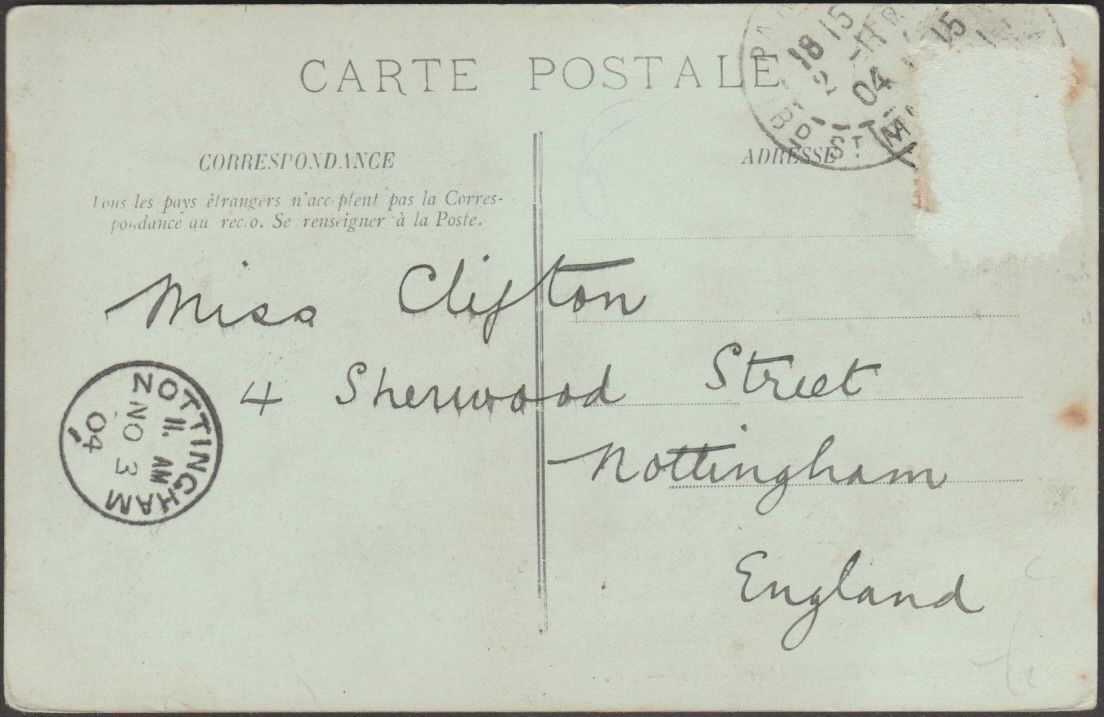 CARTE POSTALE
CORRESPONDANCE
ADRESSE
Tous les pays étrangers n'acceptent pas la Corres-
pondance au recto. Se renseigner à la Poste.
Miss Clifton
4 Sherwood Street
Nottingham
England
NOTTINGHAM
11. AM
NO 3
04
18 15
2
04
15
BD ST